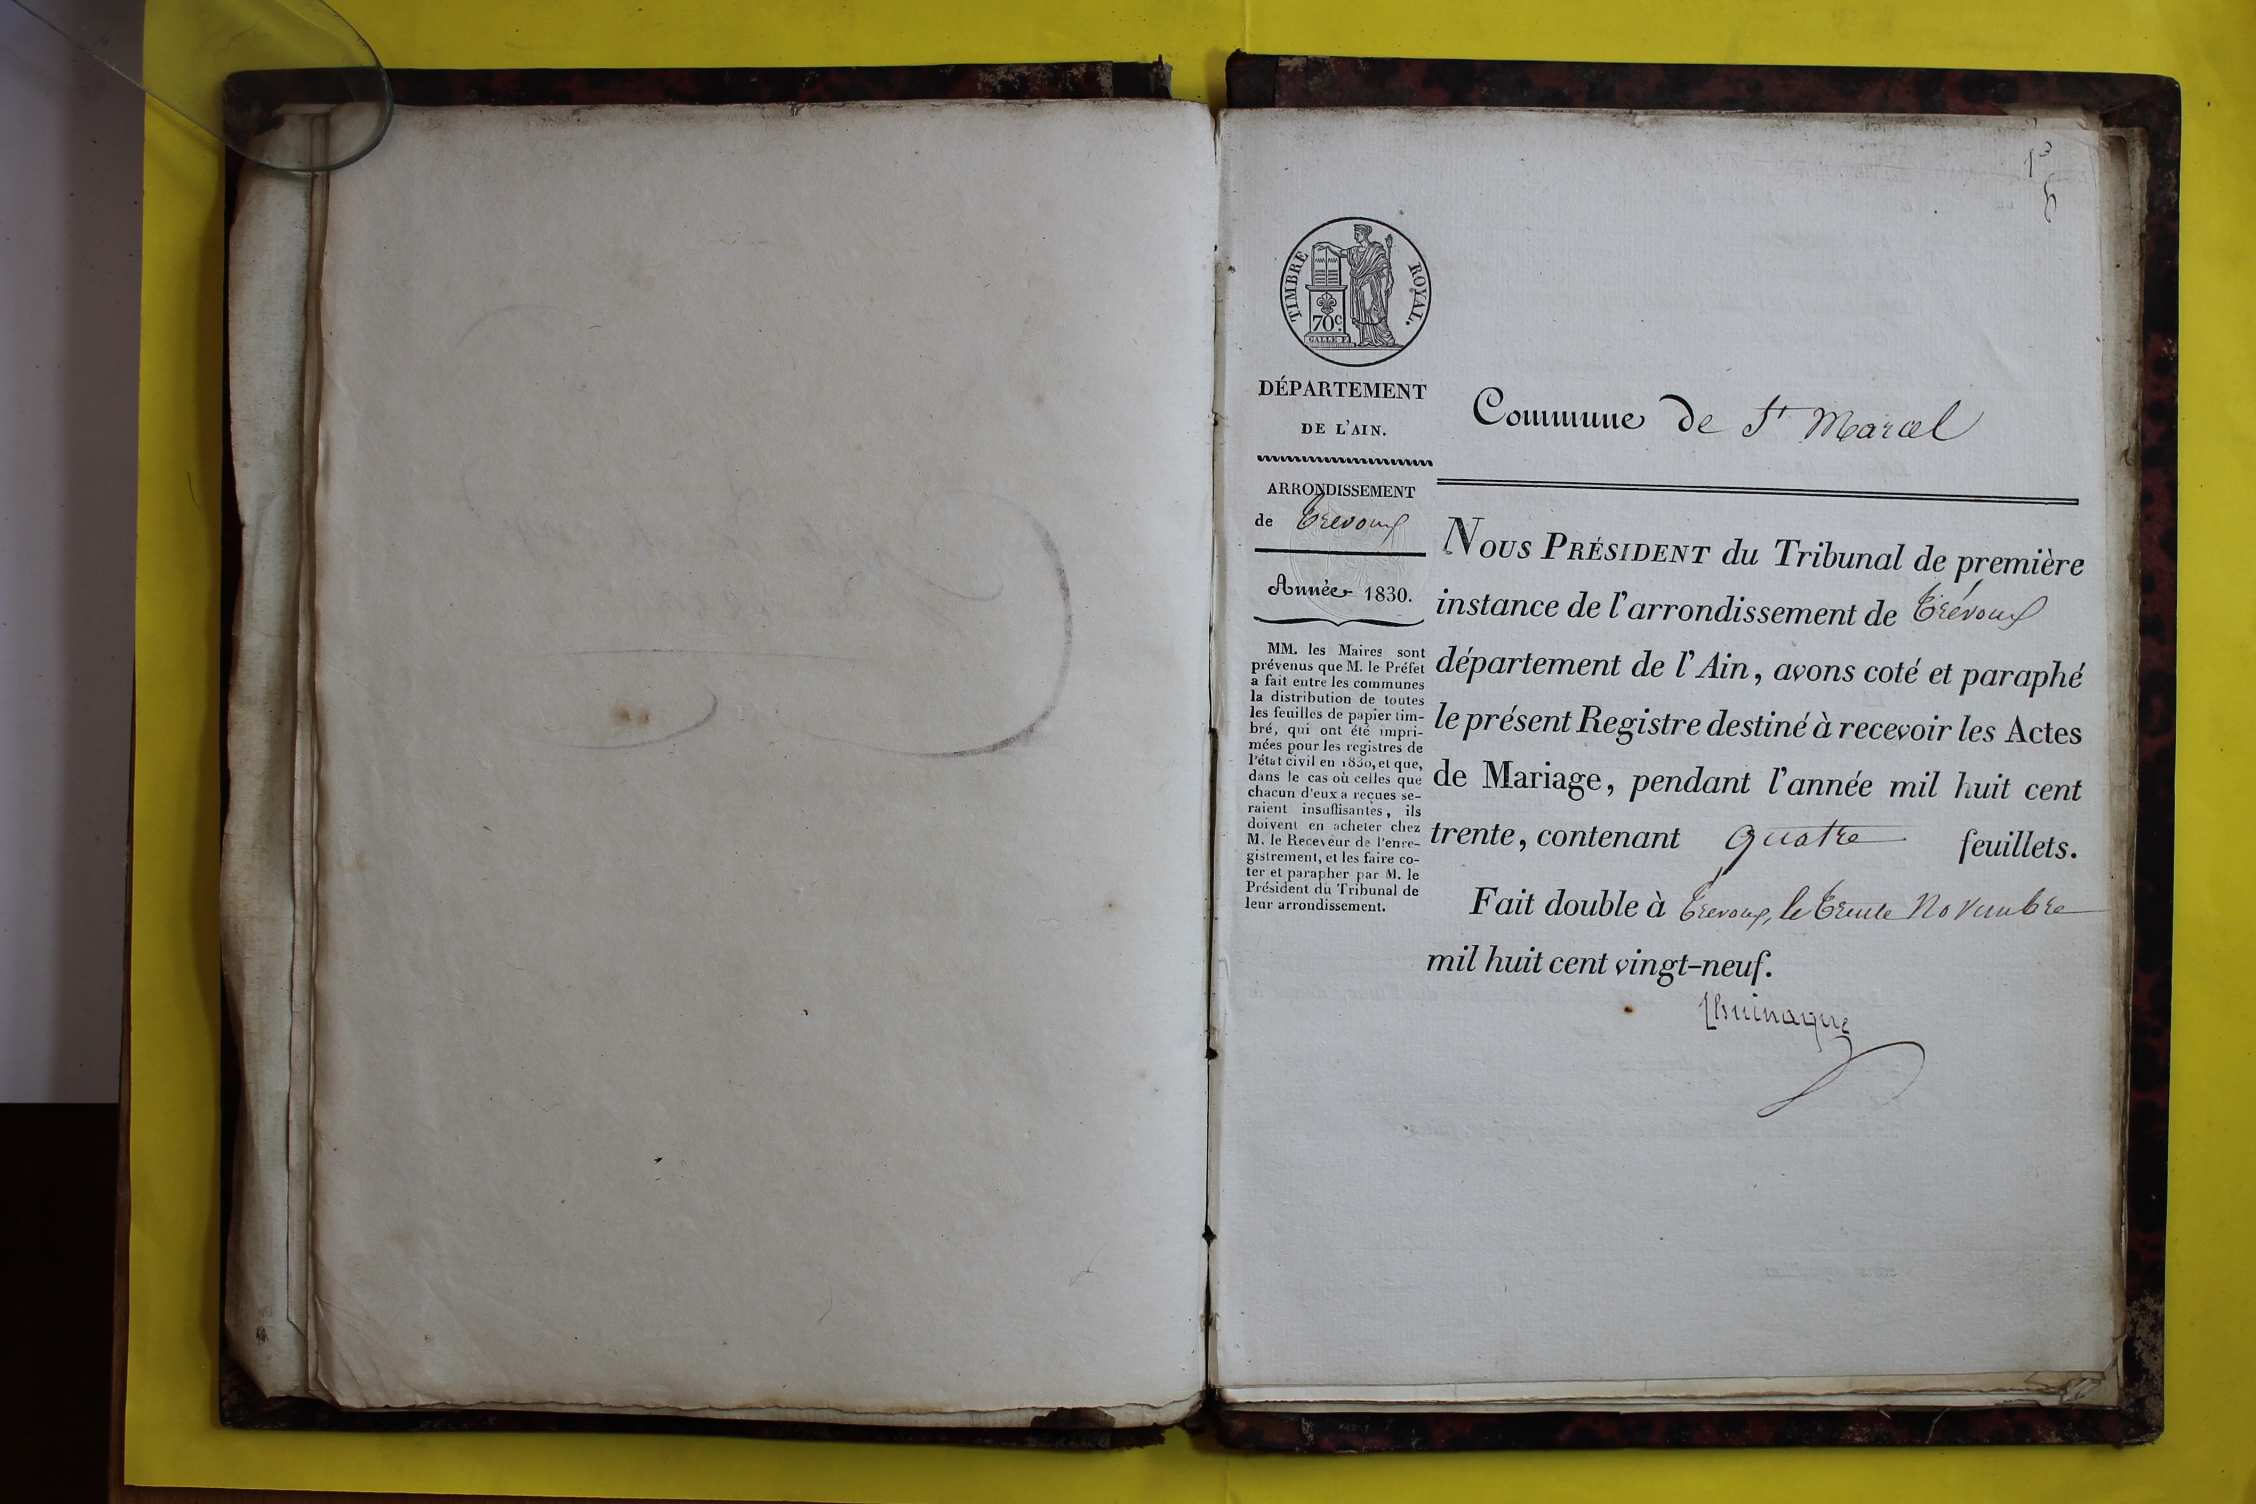 TIMBRE ROYAL.
70 C.
DÉPARTEMENT
DE L'AIN.
ARRONDISSEMENT
de Trevoux
Année 1830.
MM. les Maires sont
prévenus que M. le Préfet
a fait entre les communes
la distribution de toutes
les feuilles de papier tim-
bré, qui ont été impri-
mées pour les registres de
l'état civil en 1830, et que,
dans le cas où celles que
chacun d'eux a reçues se-
raient insuffisantes, ils
doivent en acheter chez
M. le Receveur de l'enre-
gistrement, et les faire co-
ter et parapher par M. le
Président du Tribunal de
leur arrondissement.
Commune de St Marcel
NOUS PRÉSIDENT du Tribunal de première
instance de l'arrondissement de Trévoux
département de l'Ain, avons coté et paraphé
le présent Registre destiné à recevoir les Actes
de Mariage, pendant l'année mil huit cent
trente, contenant quatre feuillets.
Fait double à Trevoux, le trente Novembre
mil huit cent vingt-neuf.